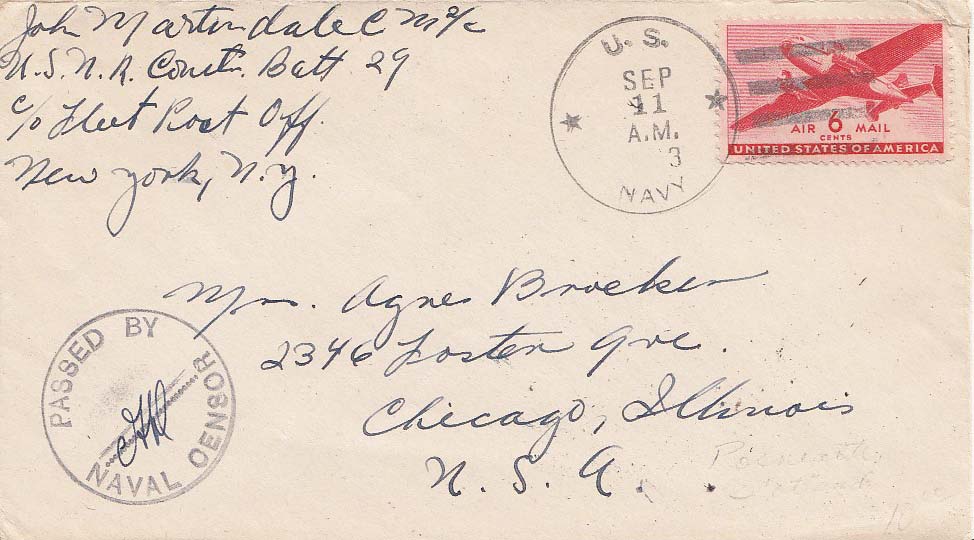 John Martindale C M 2/c
U.S.N.R. Constr. Batt 29
c/o Fleet Post Off.
New York, N.Y.
U. S.
SEP
11
A.M.
3
NAVY
AIR 6 MAIL
CENTS
UNITED STATES OF AMERICA
Mrs. Agnes Brocker
2346 Foster Ave.
Chicago, Illinois
U. S. A.
PASSED BY
NAVAL CENSOR
10